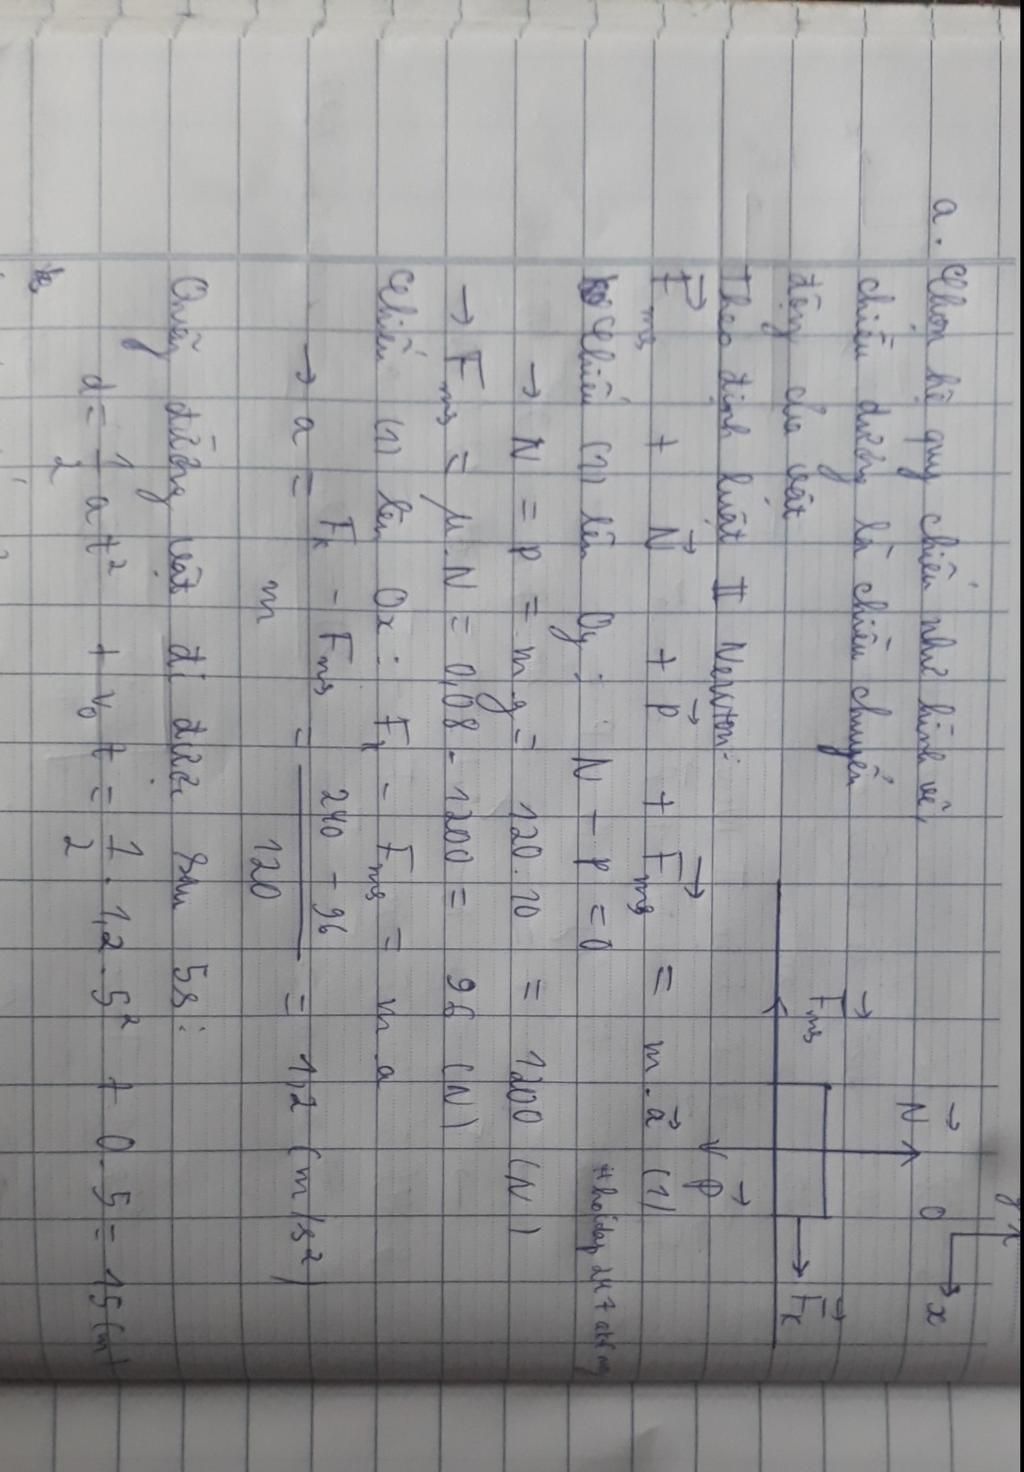 a. Chọn hệ quy chiếu như hình vẽ,
chiều dương là chiều chuyển
động của vật
y
O
x
N
Fms
Fk
P
Theo định luật II Newton:
Fms + N + P + Fms = m.a (1)
Chiếu (1) lên Oy: N - P = 0
→ N = P = m.g = 120.10 = 1200 (N)
→ Fms = μ.N = 0,08 . 1200 = 96 (N)
Chiếu (1) lên Ox: Fk - Fms = m.a
→ a = (Fk - Fms)/m = (240 - 96)/120 = 1,2 (m/s²)
Quãng đường vật đi được sau 5s:
d = 1/2 a t² + v₀ t = 1/2 . 1,2 . 5² + 0.5 = 15 (m)